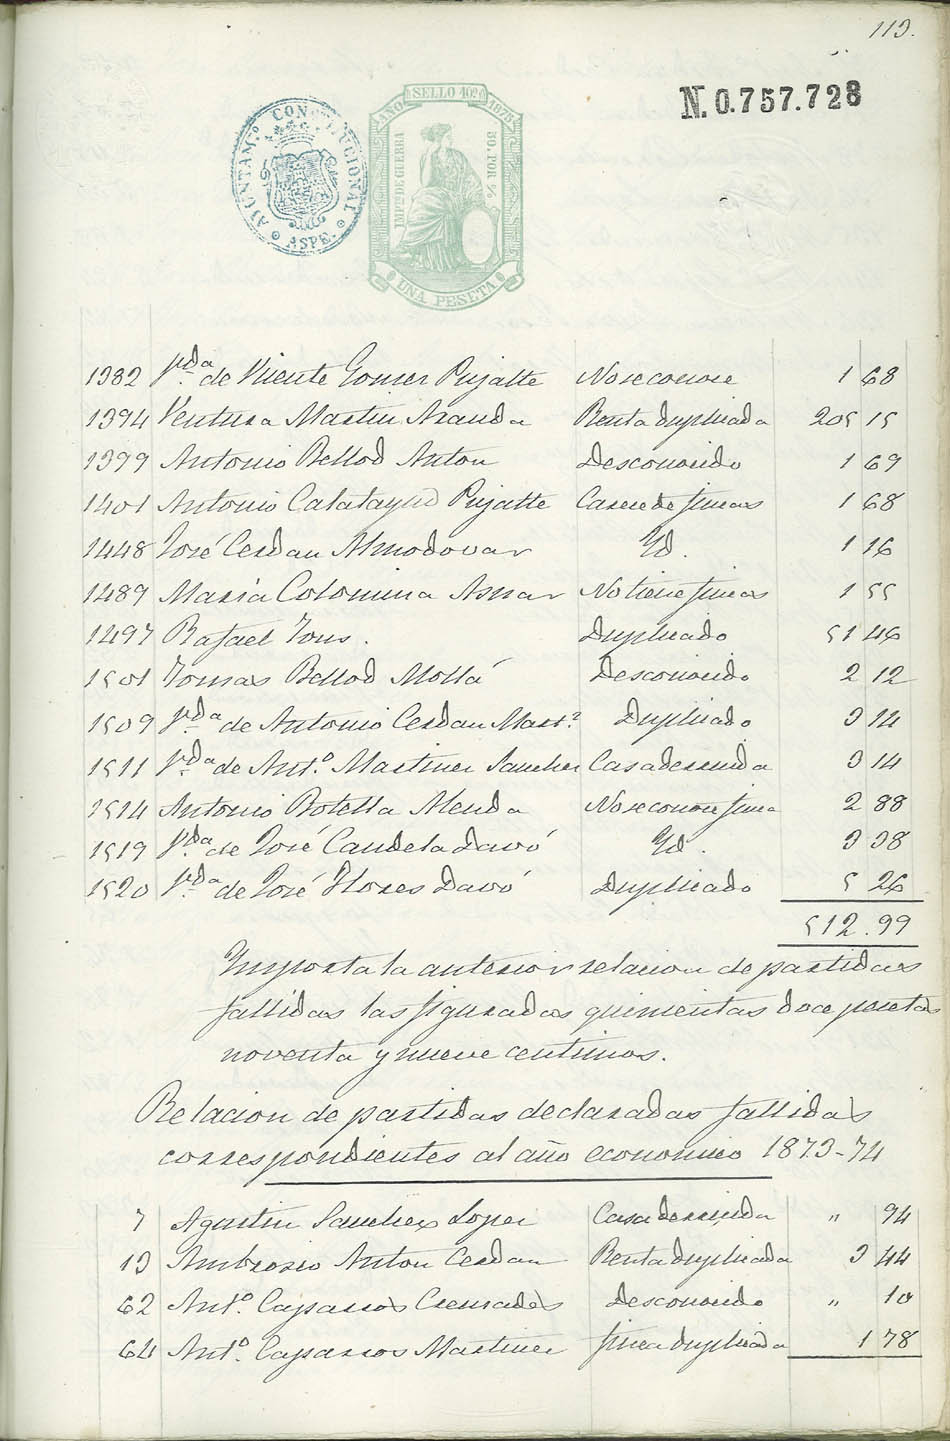 113.
N. 0.757.728
AYUNTAM.º CONSTITUCIONAL
ASPE.
AÑO SELLO 10º 1875
IMP.º DE GUERRA
50. POR %
UNA PESETA
1382 V.da de Vicente Gomez Pujalte No se conoce 1 68
1394 Ventura Martin Aranda Renta duplicada 205 15
1399 Antonio Bellod Anton Desconocido 1 69
1401 Antonio Calatayud Pujalte Carece de fincas 1 68
1448 José Cerdan Almodovar Yd. 1 16
1489 Maria Colomina Asnar No tiene fincas 1 55
1497 Rafael Tous. Duplicado 51 46
1501 Tomas Bellod Mollá Desconocido 2 12
1509 V.da de Antonio Cerdan Mart.z Duplicado 3 14
1511 V.da de Ant.º Martinez Sanchez Casa derruida 3 14
1514 Antonio Botella Alenda No se conoce finca 2 88
1519 V.da de José Candela Davó Yd. 3 38
1520 V.da de José Flores Davó Duplicado 5 26
512.99
Importa la anterior relacion de partidas
fallidas las figuradas quinientas doce pesetas
noventa y nueve centimos.
Relacion de partidas declaradas fallidas
correspondientes al año economico 1873-74
7 Agustin Sanchez Lopez Casa derruida " 94
13 Ambrosio Anton Cerdan Renta duplicada 3 44
62 Ant.º Caparros Cremades Desconocido " 10
64 Ant.º Caparros Martinez finca duplicada 1 78